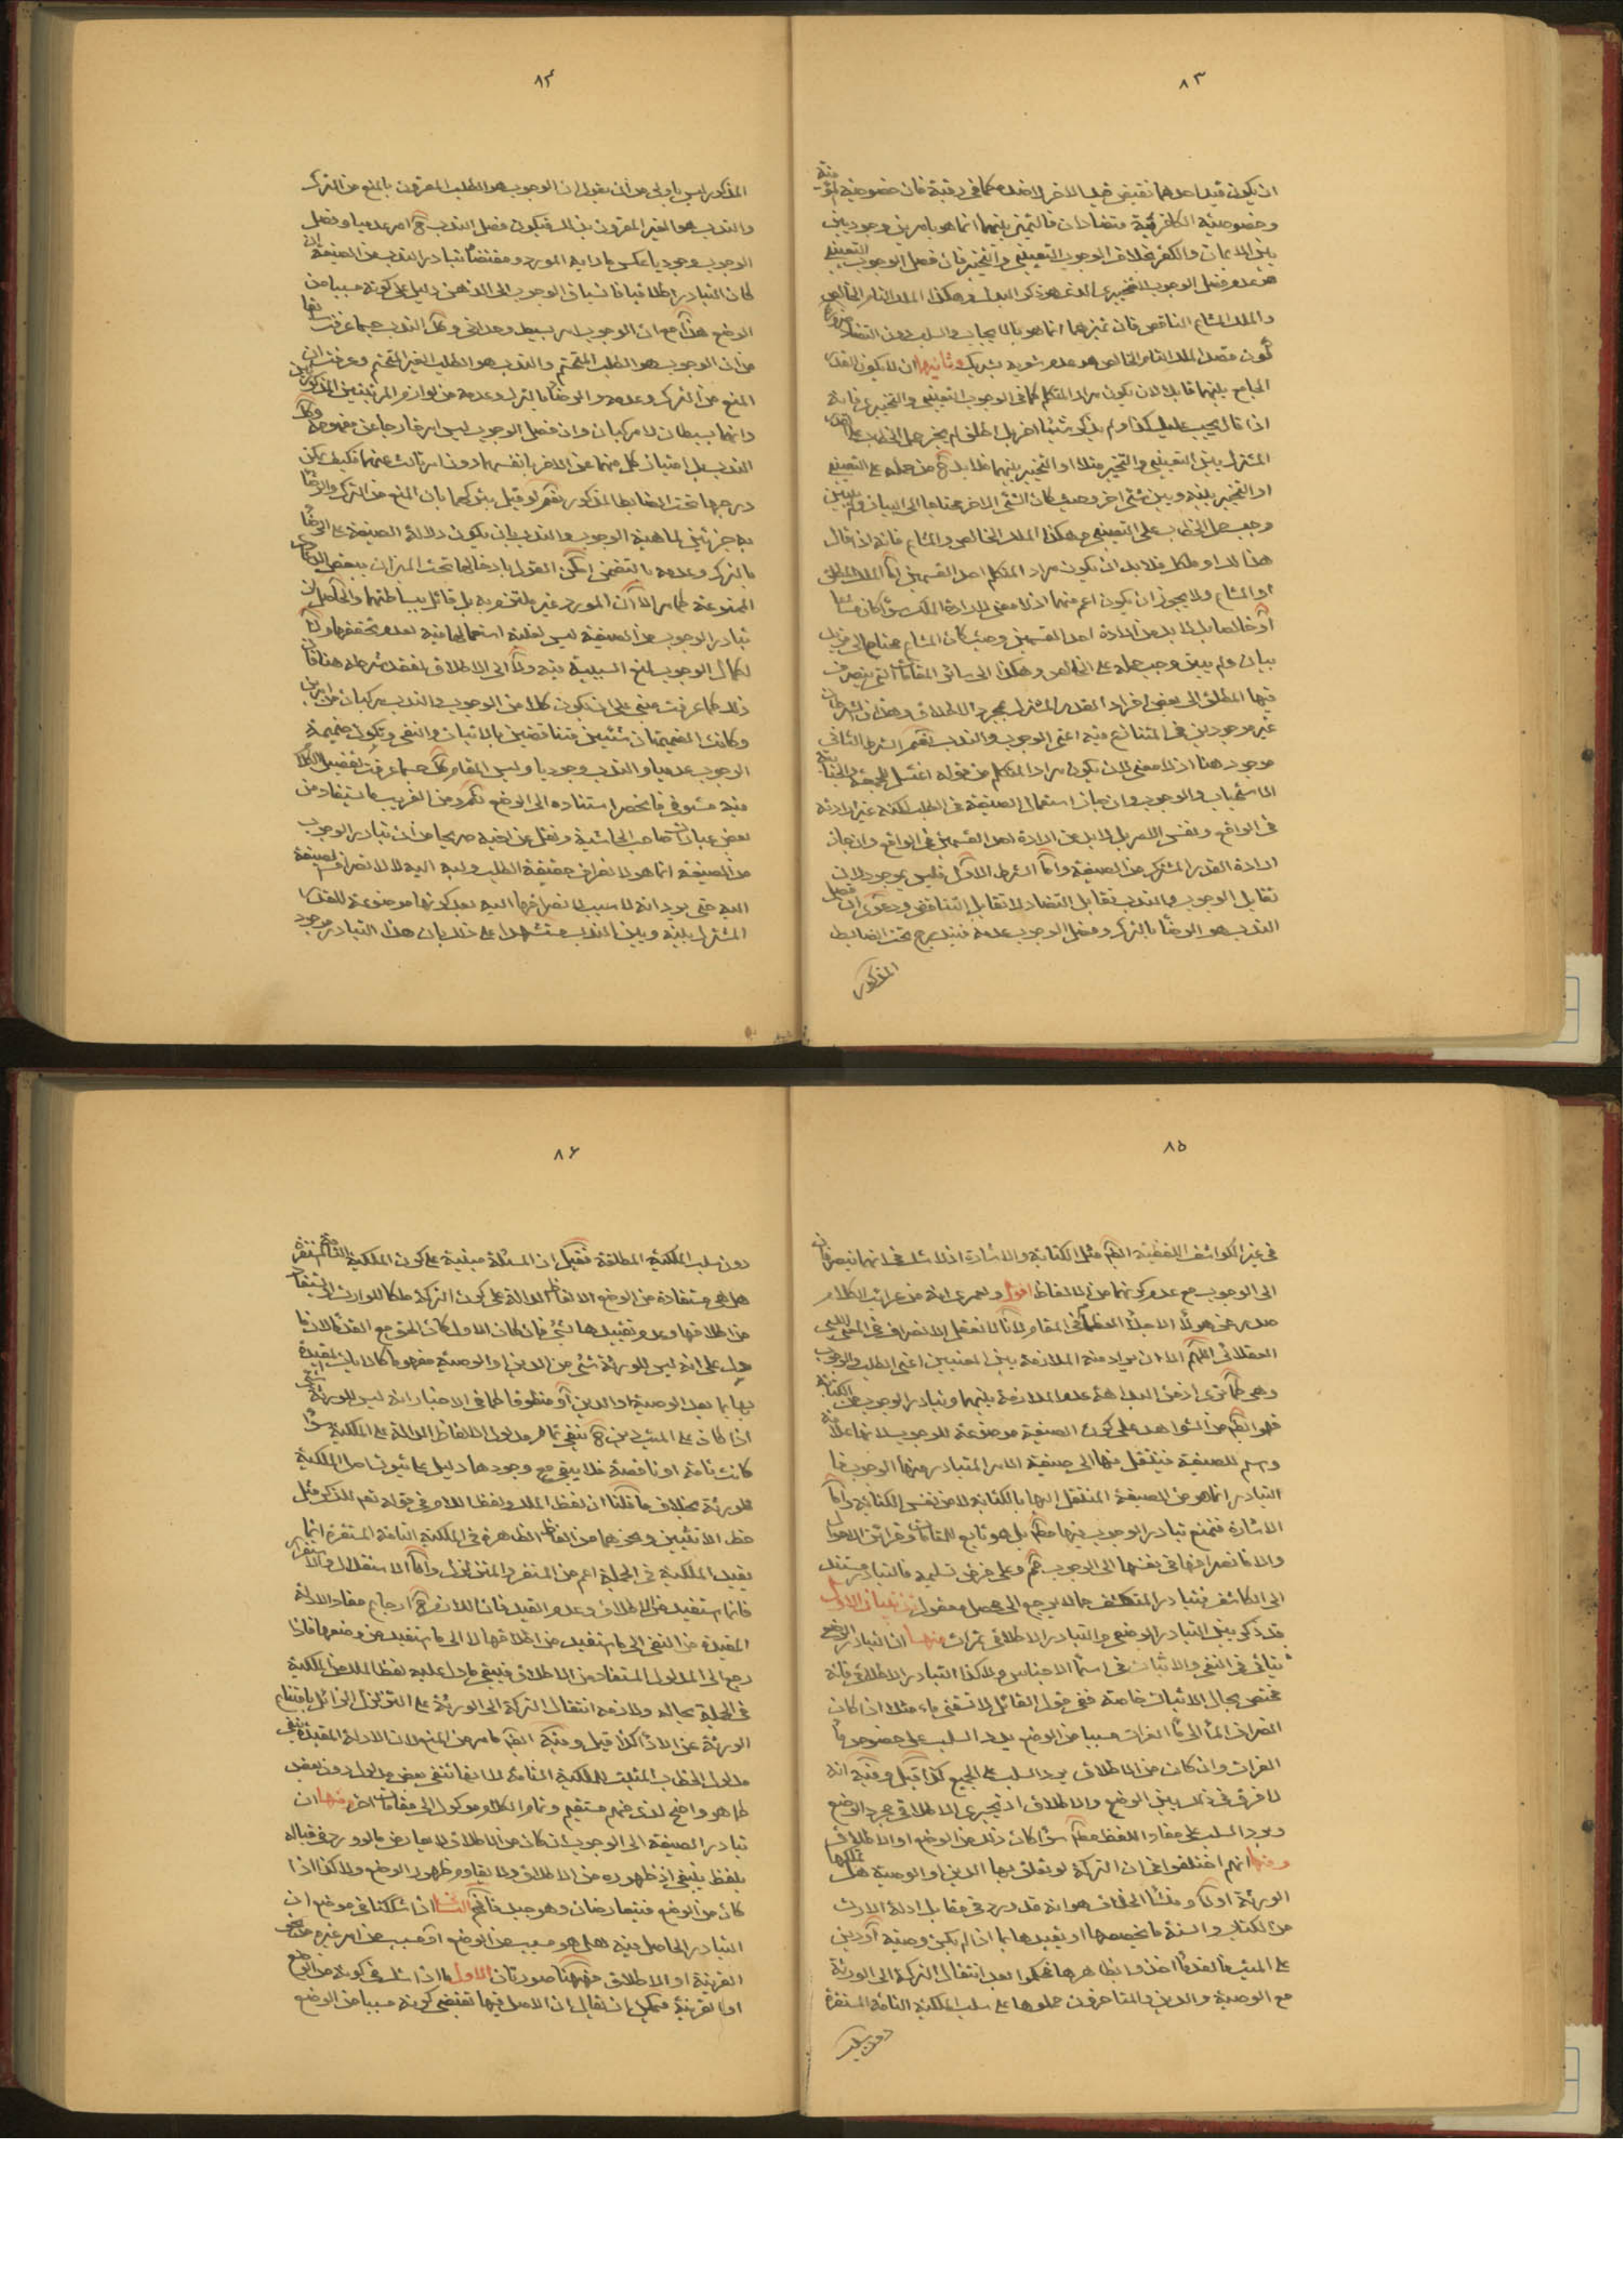 ٨٣
ان يكون قيد احدهما نقيض قيد الاخر لا ضده كما في رقبة فان خصوصية المؤمنة
وخصوصية الكافرة فيه متضادان فالتميز بينهما انما هو بامرين وجوديين
بين الايمان والكفر بخلاف الوجوب التعييني والتخييري فان فصل الوجوب التعييني
هو عدم فصل الوجوب التخييري الذي هو ذكر البدل وهكذا الملك التام الخالص
والملك المشاع الناقص فان تميزهما انما هو بالايجاب والسلب دون التضاد
كون فصل الملك التام الخالص هو عدم شوبه بشريك وثانيها ان لا يكون القدر
الجامع بينهما قابلا لان يكون مراد المتكلم كما في الوجوب التعييني والتخييري فانه
اذا قال يجب عليك كذا ولم يذكر شيئا اخر بل اطلق لم يجز حمل الخطاب على القدر
المشترك بين التعييني والتخييري مثلا او التخيير بينهما فلا بد ح من حمله على التعييني
او التخيير بينه وبين شئ اخر وحيث كان الشئ الاخر محتاجا الى البيان ولم يبين
وجب حمل الخطاب على التعييني وهكذا الملك الخالص والمشاع فانه اذا قال
هذا لك او ملكك فلا بد ان يكون مراد المتكلم احد القسمين اما الملك المطلق
او المشاع ولا يجوز ان يكون اعم منهما اذ لا معنى لارادة الملك سواء كان مشاعا
او خالصا بل لا بد من ارادة احد القسمين وحيث كان المشاع محتاجا الى مزيد
بيان ولم يبين وجب حمله على الخالص وهكذا الى سائر المقامات التي ينصرف
فيها المطلق الى بعض افراد القدر المشترك بمجرد الاطلاق وهذان الشرطان
غير موجودين في المتنازع فيه اعني الوجوب والندب نعم الشرط الثاني
موجود هنا اذ لا معنى لان يكون مراد المتكلم من قوله اغتسل للجمعة والجنابة
الاستحباب والوجوب وان جاز استعمال الصيغة في الطلب لكنه غير ارادته
في الواقع ونفس الامر بل لا بد من ارادة احد القسمين في الواقع وان جاز
ارادة القدر المشترك من الصيغة واما الشرط الاول فليس بموجود لان
تقابل الوجوب والندب تقابل التضاد لا تقابل التناقض ودعوى ان فصل
الندب هو الرضا بالترك وفصل الوجوب عدمه فيندرج تحت الضابط
المذكور
٨٤
المذكور ليس باولى من ان يقول ان الوجوب هو الطلب المقرون بالمنع من الترك
والندب هو الغير المقرون بذلك فيكون فصل الندب ح امرا عدميا وفصل
الوجوب وجوديا عكس ما رامه المورد ومقتضاه تبادر الندب من الصيغة ان
كان التبادر اطلاقيا فانسياق الوجوب الى الذهن دليل على كونه مسببا من
الوضع هذا مع ان الوجوب امر بسيط وحداني وكك الندب حسبما عرفت سابقا
من ان الوجوب هو الطلب المتحتم والندب هو الطلب الغير المتحتم وعرفت ان
المنع من الترك وعدمه والرضا بالترك وعدمه من لوازم المرتبتين المذكورتين
وانهما بسيطان لا مركبان وان فصل الوجوب ليس امرا خارجا عن مفهومه وكك
الندب بل امتياز كل منهما عن الاخر بانفسهما دون امر ثالث عنهما فكيف يمكن
درجها تحت الضابط المذكور نعم لو قيل بتركبهما بان المنع من الترك والرضا
به جزئين لماهية الوجوب والندب بان يكون دلالة الصيغة على الرضا
بالترك وعدمه بالتضمن امكن القول بادخالها تحت الميزان ببعض الدعاوي
الممنوعة كما مر الا ان المورد غير ملتزم به بل قائل ببساطتهما والحاصل ان
تبادر الوجوب من الصيغة ليس لغلبة استعمالها فيه لعدم تحققها ولا
لكمال الوجوب لمنع السببية فيه ولا الى الاطلاق لفقد شرطه هنا فان
ذلك كما عرفت مبني على ان يكون كلا من الوجوب والندب مركبان من امرين
وكانت الضميمتان شيئين متناقضين بالاثبات والنفي ويكون ضميمة
الوجوب عدميا والندب وجوديا وليس المقام كك حسبما عرفت تفصيل الكلام
فيه مستوفى فانحصر استناده الى الوضع نعم ومن الغريب ما يستفاد من
بعض عبارات صاحب الحاشية ونقل عن اخيه صريحا من ان تبادر الوجوب
من الصيغة انما هو لانصراف حقيقة الطلب ولبه اليه لا لانصراف الصيغة
اليه حتى يرد انه لا سبب لانصرافها اليه بعد كونها موضوعة للقدر
المشترك بينه وبين الندب مستشهدا على ذلك بان هذا التبادر موجود
٨٥
في غير الكواشف اللفظية ايضا مثل الكتابة والاشارة اذ لا شك في انهما ينصرفان
الى الوجوب مع عدم كونهما من الالفاظ اقول ولعمري انه من غرائب الكلام
صدر من هؤلاء الاجلاء العظماء في المقام لانا لا نعقل الانصراف في المعنى اللبي
العقلائي اللهم الا ان يراد منه الملازمة بين المعنيين اعني الطلب والوجوب
وهي كما ترى اذ من البداهة عدم الملازمة بينهما وتبادر الوجوب من الكتابة
فهو ايضا من الشواهد على كون الصيغة موضوعة للوجوب لانها علامة
ورسم للصيغة فينتقل منها الى صيغة الامر المتبادر منها الوجوب فا
التبادر انما هو من الصيغة المنتقل اليها بالكتابة لا من نفس الكتابة واما
الاشارة فنمنع تبادر الوجوب فيها مطلقا بل هو تابع للمقامات وقرائن الاحوال
والا فانصرافها في بعضها الى الوجوب مم وعلى فرض تسليمه فالتبادر مستند
الى الكاشف فتبادر المنكشف مما لا يرجع الى محصل معقول تذنيبان الاول
قد ذكر بين التبادر الوضعي والتبادر الاطلاقي ثمرات منها ان التبادر الوضعي
يتأتى في النفي والاثبات في اسماء الاجناس ولا كذا التبادر الاطلاقي فانه
مختص بحال الاثبات خاصة ففي قول القائل لا تسقني ماء مثلا ان كان
انصراف الماء الى ماء الفرات مسببا من الوضع يرد السلب على خصوص ماء
الفرات وان كان من الاطلاق يرد السلب على الجميع كذا قيل وفيه انه
لا فرق في ذلك بين الوضع والاطلاق اذ يجري الاطلاق مجرى الوضع
ويرد السلب على مفاد اللفظ مطلقا سواء كان ذلك من الوضع او الاطلاق
ومنها انهم اختلفوا في ان التركة لو تعلق بها الدين او الوصية هل تملكها
الورثة او لا ومنشأ الخلاف هو انه قد ورد في مقابل ادلة الارث
من الكتاب والسنة ما يخصصها او يقيدها بما اذا لم يكن وصية او دين
على الميت فالقدماء اخذوا بظاهرها فحكموا بعدم انتقال التركة الى الورثة
مع الوصية والدين والمتاخرون حملوها على سلب الملكية التامة المستقرة
دون سلب
٨٦
دون سلب الملكية المطلقة فقيل ان المسئلة مبنية على كون الملكية التامة المستقرة
هل هي مستفادة من الوضع الالفاظ الدالة على كون التركة ملكا للوارث او يستفاد
من اطلاقها وعدم تقييدها بشئ فان كان الاول كان الحق مع القدماء لان ما
دل على انه ليس للورثة شئ من الدين او الوصية مفهوما كالايات المقيدة
بها بما بعد الوصية او الدين او منطوقا كما في الاخبار انه ليس للورثة شئ
اذا كان على الميت دين ح ينفي تمام مدلول الالفاظ الدالة على الملكية سواء
كانت تامة او ناقصة فلا يبقى مع وجودها دليل على ثبوت اصل الملكية
للورثة بخلاف ما قلنا ان لفظ الملك ولفظ اللام في قوله تعم للذكر مثل
حظ الانثيين ونحوهما من الفاظ الظاهرة في الملكية التامة المستقرة انما
يفيد الملكية في الجملة اعم من المستقر والمتزلزل واما الاستقلال والاستقرار
فانما يستفيد من الاطلاق وعدم القيد فان اللازم ح ارجاع مفاد الادلة
المقيدة من النفي الى ما يستفيد من اطلاقها لا الى ما يستفيد من وضعها فاذا
رجع الى المدلول المستفاد من الاطلاق فيبقى ما دل عليه لفظ الملك من الملكية
في الجملة بحاله ولازمه انتقال التركة الى الورثة على التزلزل الزائل بامتناع
الورثة عن الاداء كذا قيل وفيه ايضا ما مر من المنع لان الادلة المقيدة ينفى
مدلول الخطاب المثبت للملكية التامة لا انها تنفي بعض مدلوله دون بعض
كما هو واضح لذى فهم مستقيم وتمام الكلام موكول الى مقامات اخر ومنها ان
تبادر الصيغة الى الوجوب ان كان من الاطلاق لا يعارض ما لو ورد في قباله
بلفظ ينبغي اذ ظهوره من الاطلاق ولا يقاوم ظهور الوضع ولا كذا اذا
كان من الوضع فيتعارضان وهو جيد فافهم الثاني اذا شككنا في موضع ان
التبادر الحاصل فيه هل هو مسبب من الوضع او مسبب من امر غيره من
القرينة او الاطلاق فههنا صورتان الاولى ما اذا شك في كونه من الوضع
او القرينة فيمكن ان يقال ان الاصل فيها تقتضي كونه مسببا من الوضع